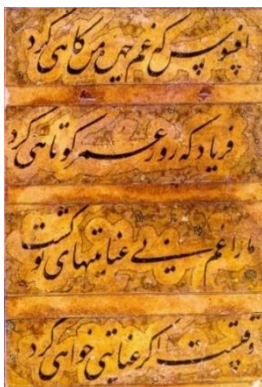 افسوس که غم چهره من کاهی کرد
فریاد که روز عمر کوتاهی کرد
ما را غم بی عنایتیهای تو کشت
وقتست اگر عنایتی خواهی کرد